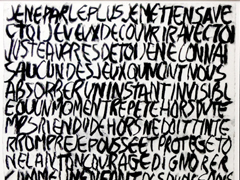 JENEPARLEPLUSJENETIENSAVE
CTOIJEVEUXDECOUVRIRAVECTOI
JUSTEAUPRESDETOIJENECONNAI
SAUCUNDESJEUXOUMONTNOUS
ABSORBERUNINSTANTINVISIBL
EOUUNMOMENTREPETEHORSDUTE
MPSRIENDUDEHORSNEDOITINTE
RROMPREJEPOUSSEETPROTEGETO
NELANTONCOURAGEDIGNORER